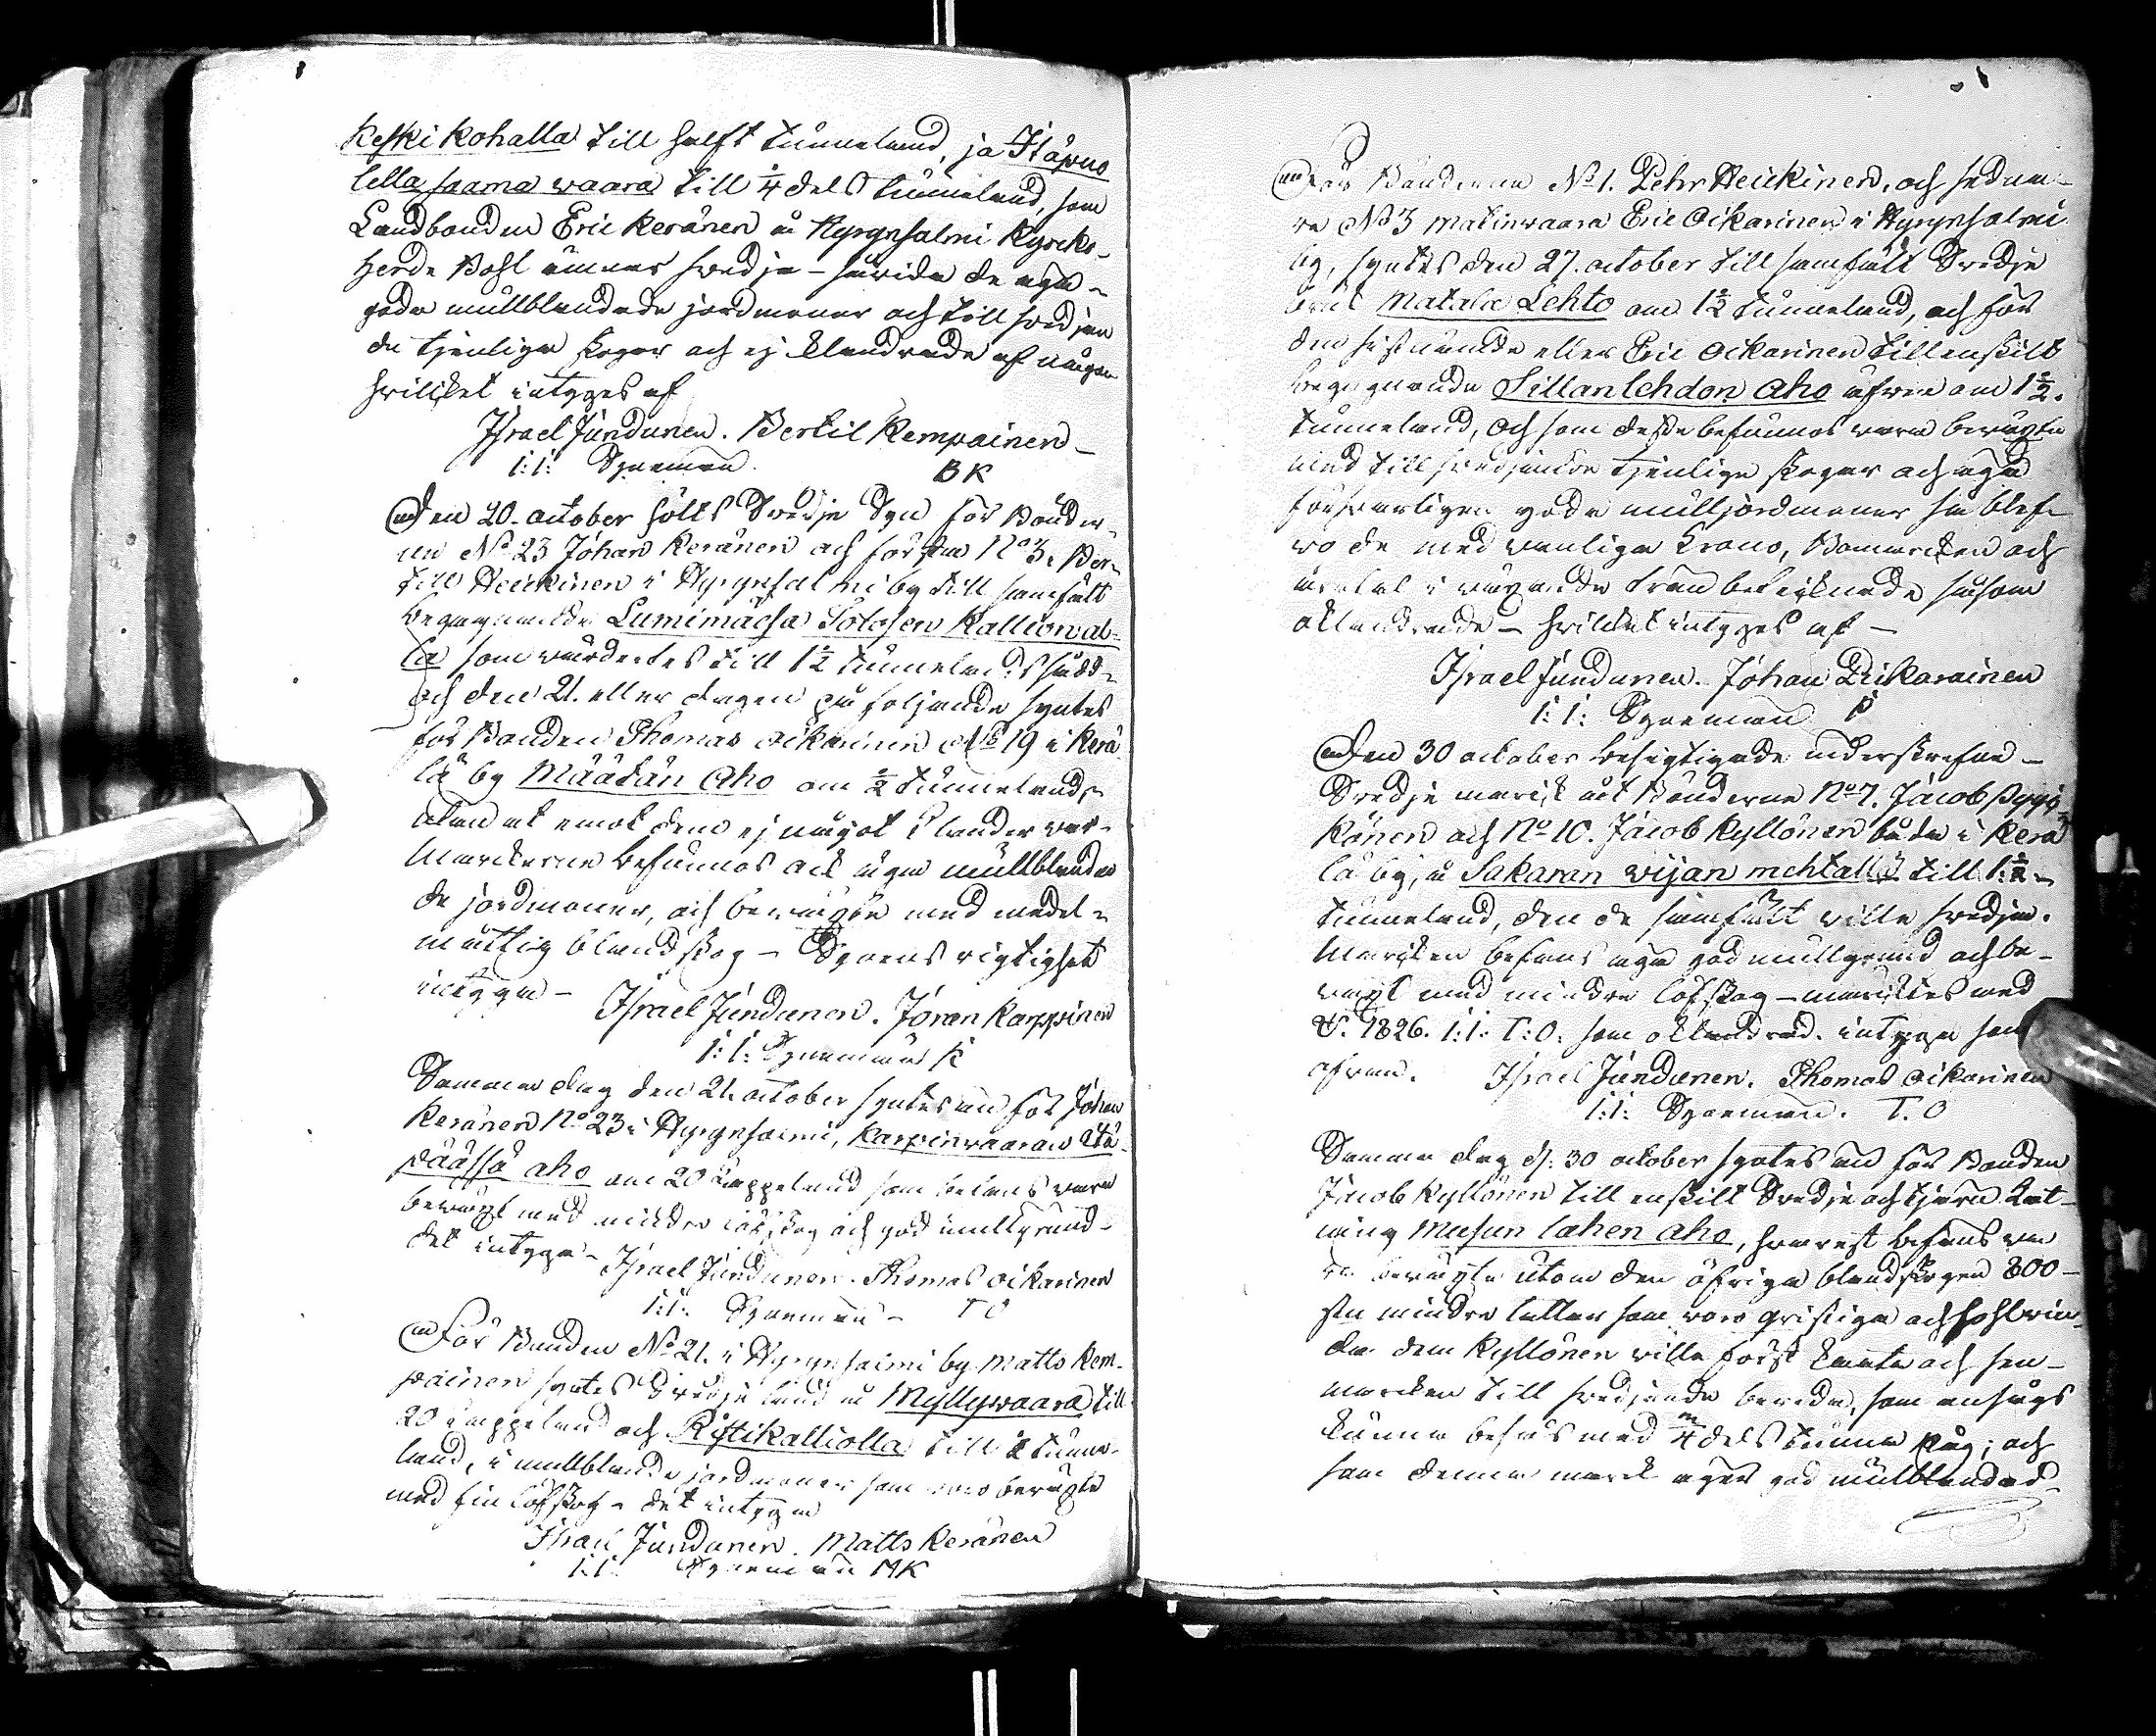 Keski Kohalla till half tunneland, ja Itäpuo
lella saama waara till 1/4 dels tunneland, som
Landbonden Eric Keränen å Hyrynsalmi Kyrko-
herde Bohl ämnar swedja - hwida de äga
goda mullblandade jordmoner och till swedjan
de tjenliga skogar och ej klandrade af någon
hwilket intyges af
Israel Jundunen. Bertil Kempainen
I:I: Syneman. BK
Den 20. october hölts Swedje Syn för Bönder-
ne No 23 Johan Keränen och för No 3. Ber-
till Heickinen i Hyrynsalmi by till samfält
begagnande Lumimäesä Solosen Kallional-
la som wärdertes till 1 1/2 tunnelands
och den 21. eller dagen på följande syntes
för Bonden Thomas Oikarinen No 19 i Kerä
lä by Määtän Aho om 1/2 tunneland,
utan at emot den ej något klander war.
Marckerne befunnos ock äga mullblanda
de jordmoner, och bewäxte med medel-
måttig blandskog - Synens rigtighet
intyga - Israel Jundunen. Jöran Karppinen
I:I: Syneman K
Samma dag den 21. october syntes än för Johan
Keränen No 23 i Hyrynsalmi, Karpinwaaran Itä-
päässä aho om 20 kappeland som befans wara
bewäxt med mindre löfskog och god mullgrund-
det intyga - Israel Jundunen. Thomas Oikarinen
I:I: Syneman - TO
För Bonden No 21. i Hyrynsalmi by Matts Kem-
painen syntes Swedje land å Myllywaara till
20 kappeland och Ristikalliolla till 1 tunne-
land, i mullblande jordmoner som woro bewäxte
med fin löfskog - det intyga
Israel Jundunen. Matts Keränen
I:I: Syneman MK
För Bönderne No 1. Pehr Heickinen, och
No 3 Matinwaara Eric Oikarinen i Hyrynsalmi
by, syntes den 27. october till samfält Swedje
bruk Matala Lehto om 1 1/2 tunneland, och för
den sistnämde eller Eric Oikarinen till enskilt
begagnande Sillanlehdon Aho äfwen om 1 1/2.
tunneland, och som desse befunnos wara bewäxte
med till swedjande tjenliga skogar och äga
goda mulljordmoner så blef-
wo de med wanliga Crono, Bomärcken och
årtalet i wäxande trän betecknade såsom
oklandrade - hwilket intyges af -
Israel Jundunen. Johan Oikarainen
I:I: Syneman P
Den 30 october besigtigade underskrefne -
Swedje marck åt Bönderne No 7. Jacob Pyy-
könen och No 10. Jacob Kyllönen både i Kerä
lä by, å Sakaran wijan mehtallä till 1 1/2
tunneland, den de samfält wille swedja.
Marcken befans äga god mullgrund och be-
wäxt med mindre löfskog - marcktes med
1826. I:I: T:O. som oklandrad. intyga som
ofwan. Israel Jundunen. Thomas Oikarinen
I:I: Syneman. T.O
Samma dag d. 30 october syntes än för Bonden
Jacob Kyllönen till enskilt Swedje och tjäru Kat-
ning Musun lahen aho, hwarest befans wa
ra bewäxte utom den öfriga blandskogen 800
sen mindre tallar som woro qvistiga och
da dem Kyllönen wille först kånta och sen
marcken till swedjande bereda, som ansågs
kunna besås med 1/4 dels tunna Råg; och
som denna marck äger god mulblandad